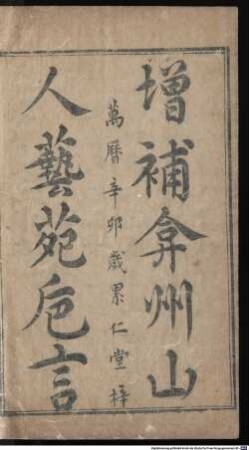 增補弇州山
萬曆辛卯歲累仁堂梓
人藝苑卮言